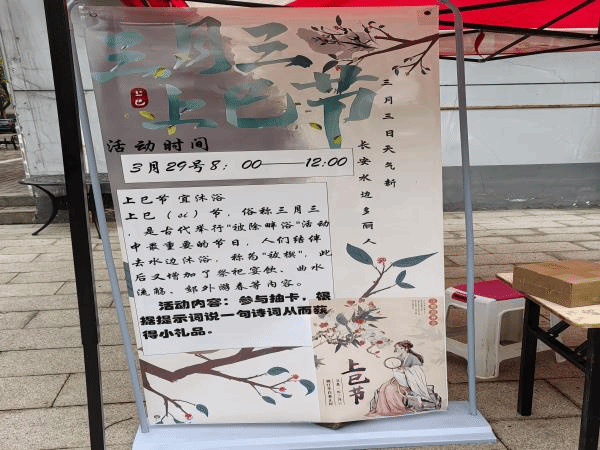 三月三
上巳节
上巳
三月三日天气新
长安水边多丽人
活动时间
3月29号8：00——12:00
上巳节 宜沐浴
上巳（sì）节，俗称三月三
，是古代举行“祓除畔浴”活动
中最重要的节日，人们结伴
去水边沐浴，称为“祓禊”，此
后又增加了祭祀宴饮、曲水
流觞、郊外游春等内容。
活动内容：参与抽卡，根
据提示词说一句诗词从而获
得小礼品。
上巳节